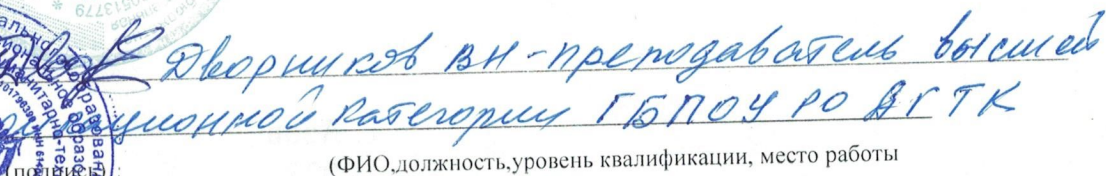 Дворников ВН - преподаватель высшей
ционной категории ГБПОУ РО ДГТК
(подпись) (ФИО,должность,уровень квалификации, место работы